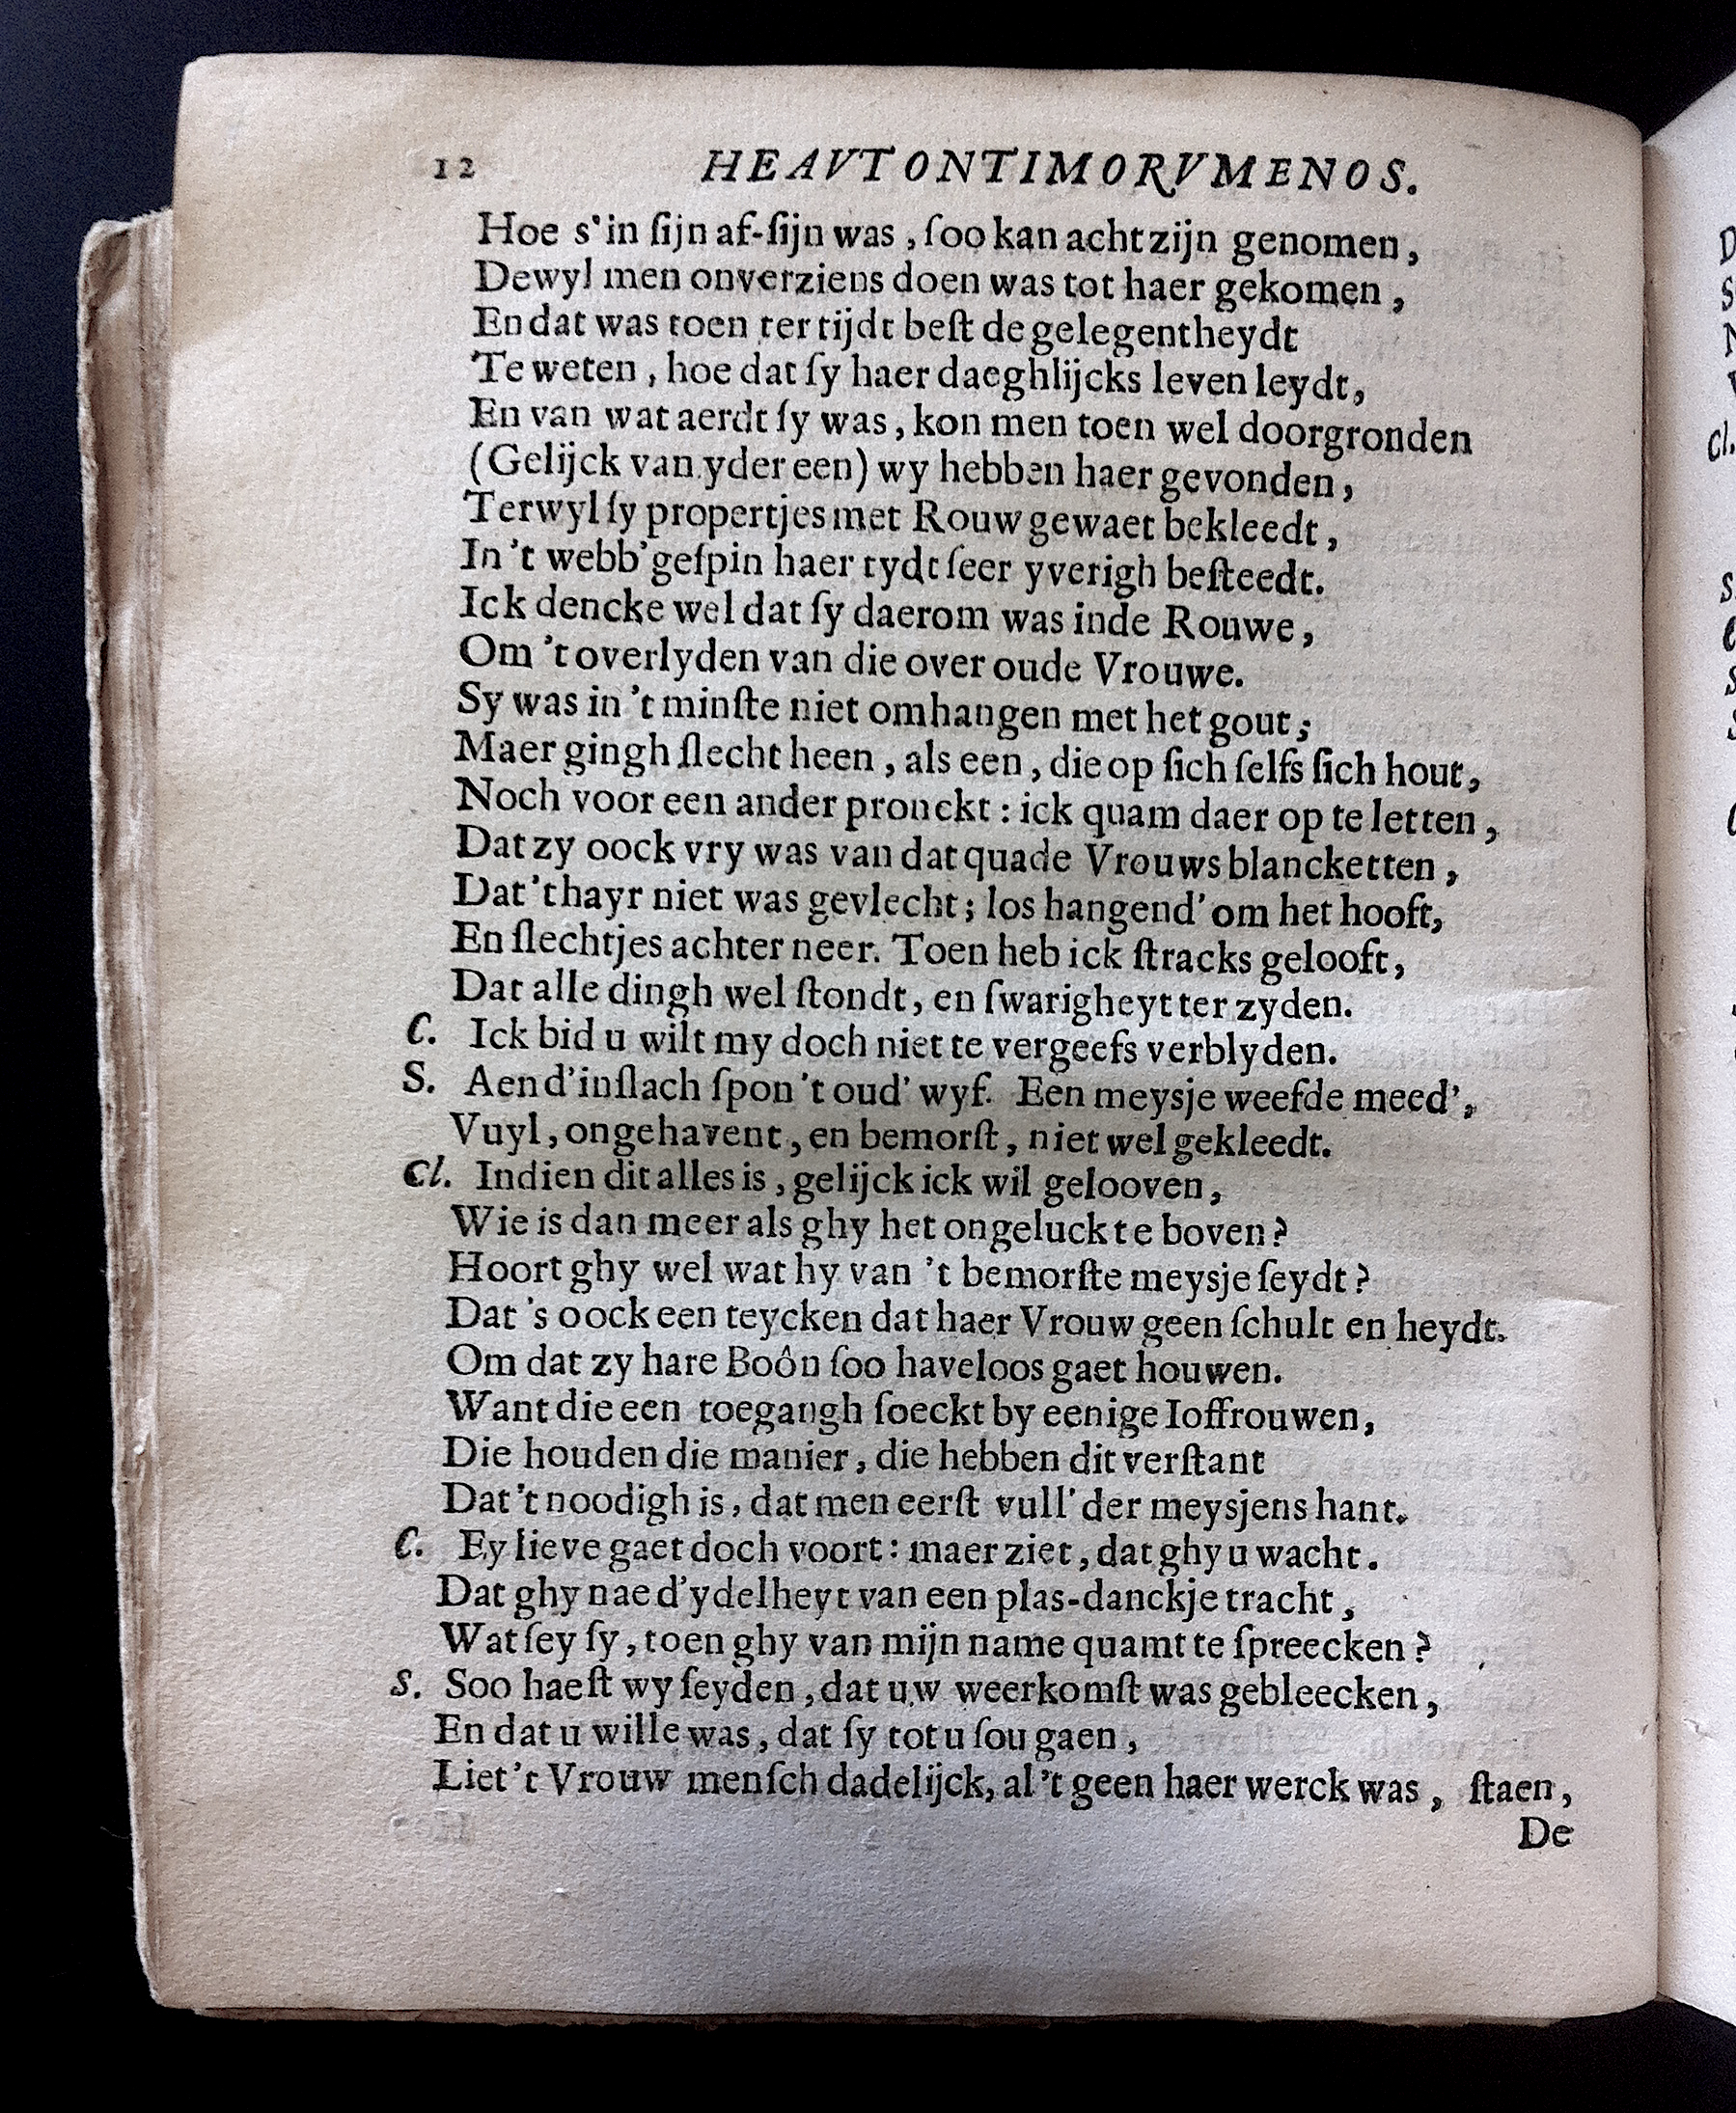 12 HEAVTONTIMORVMENOS.
Hoe s'in ſijn af-ſijn was, ſoo kan acht zijn genomen,
Dewyl men onverziens doen was tot haer gekomen,
En dat was toen ter tijdt beſt de gelegentheydt
Te weten, hoe dat ſy haer daeghlijcks leven leydt,
En van wat aerdt ſy was, kon men toen wel doorgronden
(Gelijck van yder een) wy hebben haer gevonden,
Terwyl ſy propertjes met Rouw gewaet bekleedt,
In 't webb' geſpin haer tydt ſeer yverigh beſteedt.
Ick dencke wel dat ſy daerom was inde Rouwe,
Om 't overlyden van die over oude Vrouwe.
Sy was in 't minſte niet omhangen met het gout;
Maer gingh ſlecht heen, als een, die op ſich ſelfs ſich hout,
Noch voor een ander pronckt: ick quam daer op te letten,
Dat zy oock vry was van dat quade Vrouws blancketten,
Dat 't hayr niet was gevlecht; los hangend' om het hooft,
En ſlechtjes achter neer. Toen heb ick ſtracks gelooft,
Dat alle dingh wel ſtondt, en ſwarigheyt ter zyden.
C. Ick bid u wilt my doch niet te vergeefs verblyden.
S. Aen d'inſlach ſpon 't oud' wyf. Een meysje weefde meed',
Vuyl, ongehavent, en bemorſt, niet wel gekleedt.
Cl. Indien dit alles is, gelijck ick wil gelooven,
Wie is dan meer als ghy het ongeluck te boven?
Hoort ghy wel wat hy van 't bemorſte meysje ſeydt?
Dat 's oock een teycken dat haer Vrouw geen ſchult en heydt.
Om dat zy hare Boôn ſoo haveloos gaet houwen.
Want die een toegangh ſoeckt by eenige Ioffrouwen,
Die houden die manier, die hebben dit verſtant
Dat 't noodigh is, dat men eerſt vull' der meysjens hant.
C. Ey lieve gaet doch voort: maer ziet, dat ghy u wacht.
Dat ghy nae d'ydelheyt van een plas-danckje tracht,
Wat ſey ſy, toen ghy van mijn name quamt te ſpreecken?
S. Soo haeſt wy ſeyden, dat uw weerkomſt was gebleecken,
En dat u wille was, dat ſy tot u ſou gaen,
Liet 't Vrouw menſch dadelijck, al 't geen haer werck was, ſtaen,
De